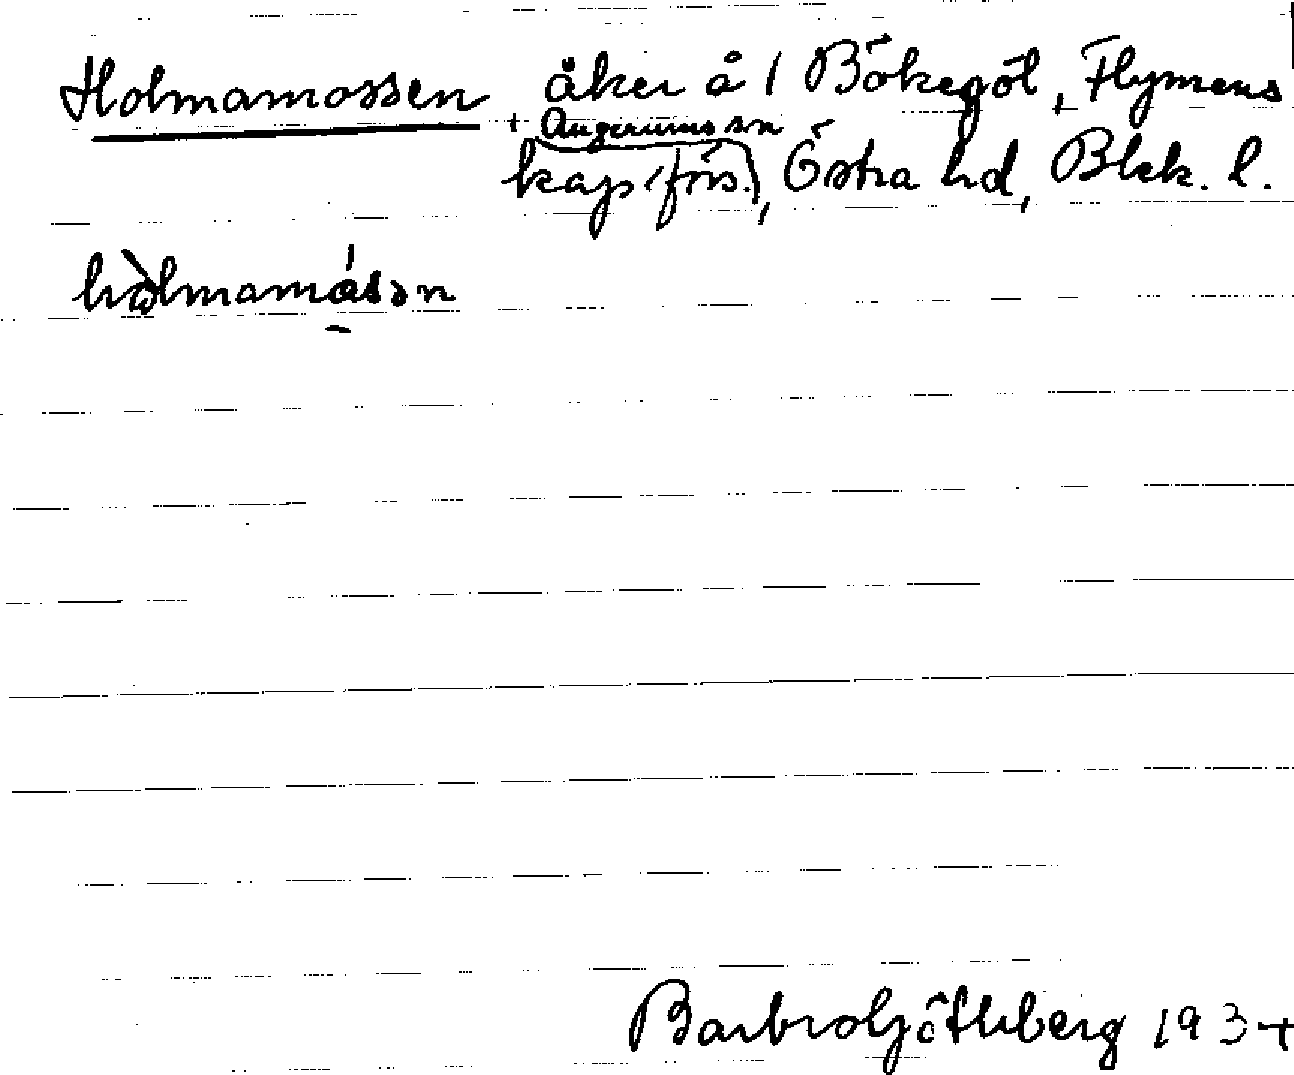 Holmamossen åker å 1 Bökegöl, Flymens
+ Augerums sn
kap. förs., Östra hd, Blek. l.
hòlmamåsən
Barbro Göthberg 1934